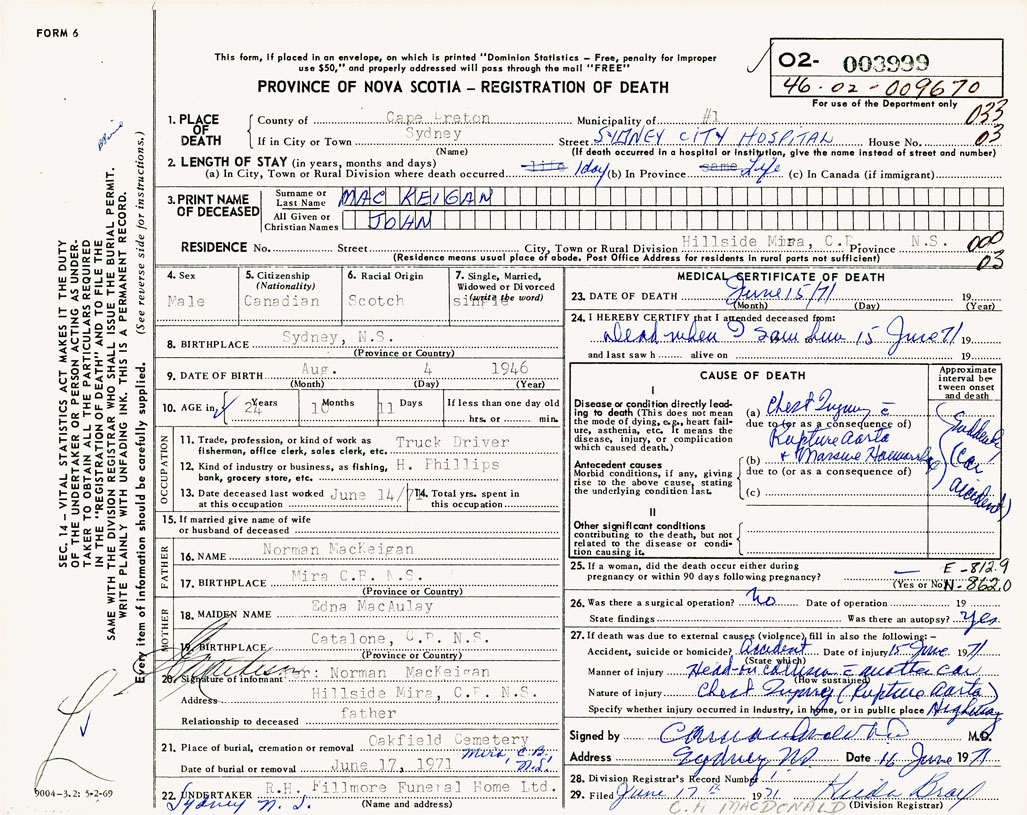 FORM 6
This form, if placed in an envelope, on which is printed "Dominion Statistics – Free, penalty for improper
use $50," and properly addressed will pass through the mail "FREE"
PROVINCE OF NOVA SCOTIA – REGISTRATION OF DEATH
02- 003999
46-02-009670
For use of the Department only
033
03
1. PLACE OF DEATH
County of Cape Breton Municipality of #1
If in City or Town Sydney Street SYDNEY CITY HOSPITAL House No.
(Name) (If death occurred in a hospital or institution, give the name instead of street and number)
2. LENGTH OF STAY (in years, months and days)
(a) In City, Town or Rural Division where death occurred life 1 day (b) In Province same Life (c) In Canada (if immigrant)
3. PRINT NAME OF DECEASED
Surname or Last Name MAC KEIGAN
All Given or Christian Names JOHN
RESIDENCE No. Street City, Town or Rural Division Hillside Mira, C.B. Province N.S.
(Residence means usual place of abode. Post Office Address for residents in rural parts not sufficient)
000
03
4. Sex Male
5. Citizenship (Nationality) Canadian
6. Racial Origin Scotch
7. Single, Married, Widowed or Divorced (write the word) single
8. BIRTHPLACE Sydney, N.S.
(Province or Country)
9. DATE OF BIRTH Aug. 4 1946
(Month) (Day) (Year)
10. AGE in 24 Years 10 Months 11 Days If less than one day old
hrs. or min.
OCCUPATION
11. Trade, profession, or kind of work as
fisherman, office clerk, sales clerk, etc. Truck Driver
12. Kind of industry or business, as fishing,
bank, grocery store, etc. H. Phillips
13. Date deceased last worked at this occupation June 14/71
14. Total yrs. spent in this occupation
15. If married give name of wife
or husband of deceased
FATHER
16. NAME Norman MacKeigan
17. BIRTHPLACE Mira C.B. N.S.
(Province or Country)
MOTHER
18. MAIDEN NAME Edna MacAulay
19. BIRTHPLACE Catalone, C.B. N.S.
(Province or Country)
20. Signature of informant Per: Norman MacKeigan
Address Hillside Mira, C.B. N.S.
Relationship to deceased father
21. Place of burial, cremation or removal Oakfield Cemetery
Mira, C.B. N.S.
Date of burial or removal June 17, 1971
22. UNDERTAKER R.H. Fillmore Funeral Home Ltd.
Sydney N.S. (Name and address)
MEDICAL CERTIFICATE OF DEATH
23. DATE OF DEATH June 15/71 19
(Month) (Day) (Year)
24. I HEREBY CERTIFY that I attended deceased from:
Dead when I saw him 15 June 71 19
and last saw h alive on 19
CAUSE OF DEATH
Approximate interval between onset and death
I
Disease or condition directly leading to death (This does not mean
the mode of dying, e.g., heart failure, asthenia, etc. It means the
disease, injury, or complication
which caused death.)
(a) Chest Injury c̄
due to (or as a consequence of)
Rupture Aorta
(b) + Massive Haemorrhage
due to (or as a consequence of)
(c)
Sudden
(Car
accident)
Antecedent causes
Morbid conditions, if any, giving
rise to the above cause, stating
the underlying condition last.
II
Other significant conditions
contributing to the death, but not
related to the disease or condition
causing it.
25. If a woman, did the death occur either during
pregnancy or within 90 days following pregnancy? —
(Yes or No)
E-812.9
N-862.0
26. Was there a surgical operation? No Date of operation 19
State findings Was there an autopsy? Yes
27. If death was due to external causes (violence), fill in also the following:–
Accident, suicide or homicide? Accident Date of injury 15 June 1971
(State which)
Manner of injury Head-on collision c̄ another car
(How sustained)
Nature of injury Chest Injury (Rupture Aorta)
Specify whether injury occurred in industry, in home, or in public place Highway
Signed by M.D.
Address Sydney NS Date 16 June 1971
28. Division Registrar's Record Number
29. Filed June 17th 1971 Hilda Bray
C. H. MACDONALD (Division Registrar)
SEC. 14 – VITAL STATISTICS ACT MAKES IT THE DUTY
OF THE UNDERTAKER OR PERSON ACTING AS UNDERTAKER
TO OBTAIN ALL THE PARTICULARS REQUIRED
IN THE "REGISTRATION OF DEATH" AND TO FILE THE
SAME WITH THE DIVISION REGISTRAR WHO SHALL ISSUE THE BURIAL PERMIT.
WRITE PLAINLY WITH UNFADING INK. THIS IS A PERMANENT RECORD.
Every item of information should be carefully supplied. (See reverse side for instructions.)
9004-3.2: 5-2-69